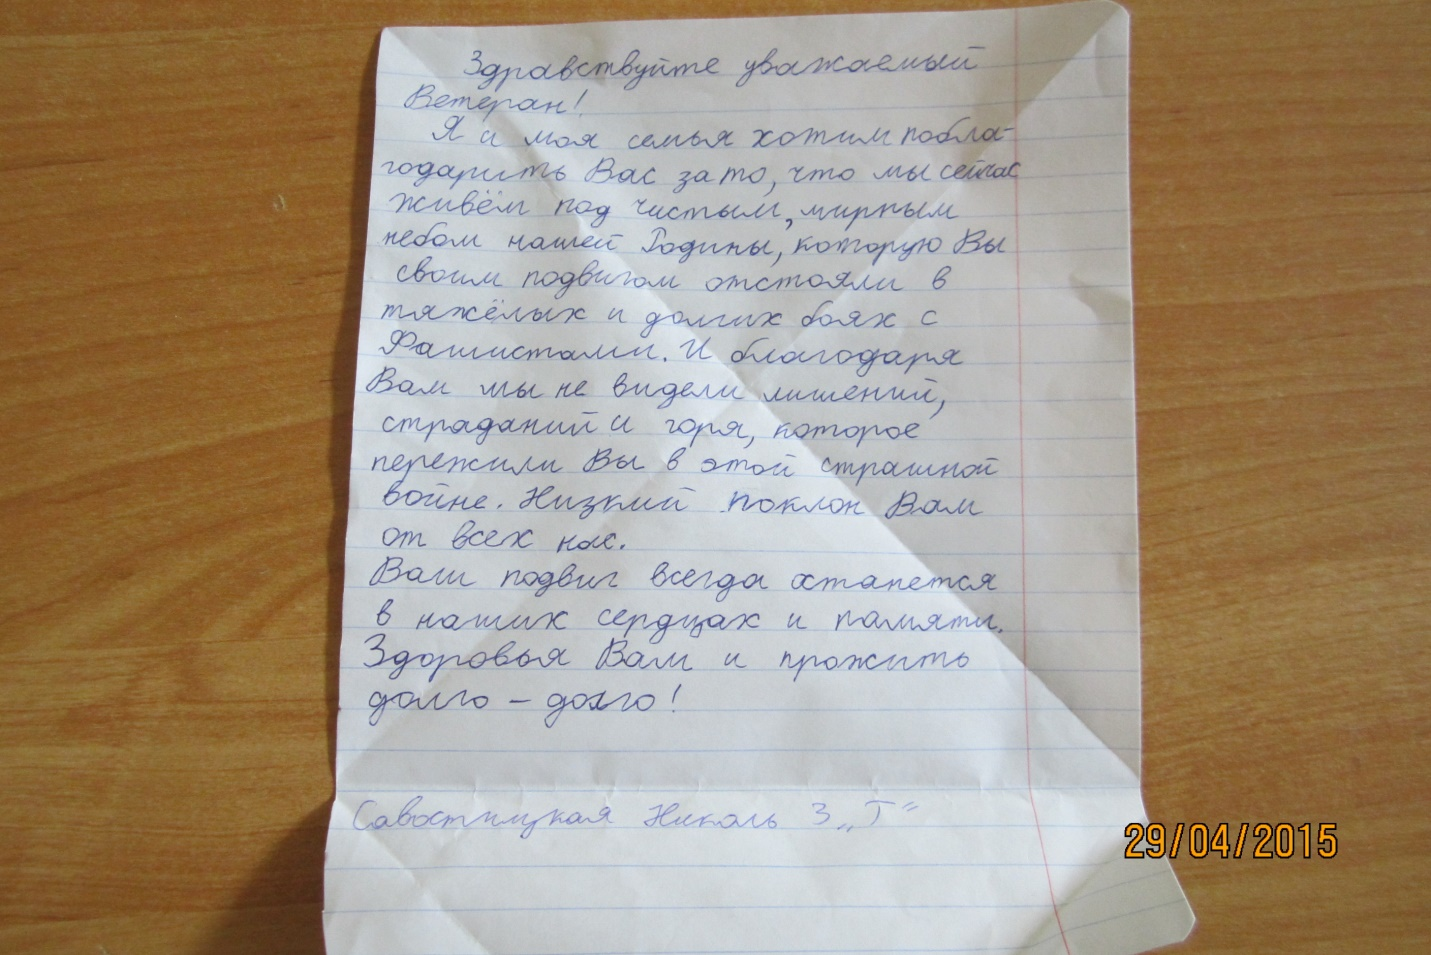 Здравствуйте уважаемый
Ветеран!
Я и моя семья хотим побла-
годарить Вас за то, что мы сейчас
живём под чистым, мирным
небом нашей Родины, которую Вы
своим подвигом отстояли в
тяжёлых и долгих боях с
Фашистами. И благодаря
Вам мы не видели лишений,
страданий и горя, которое
пережили Вы в этой страшной
войне. Низкий поклон Вам
от всех нас.
Ваш подвиг всегда останется
в наших сердцах и памяти.
Здоровья Вам и прожить
долго - долго!
Савостицкая Николь 3 „Т“
29/04/2015